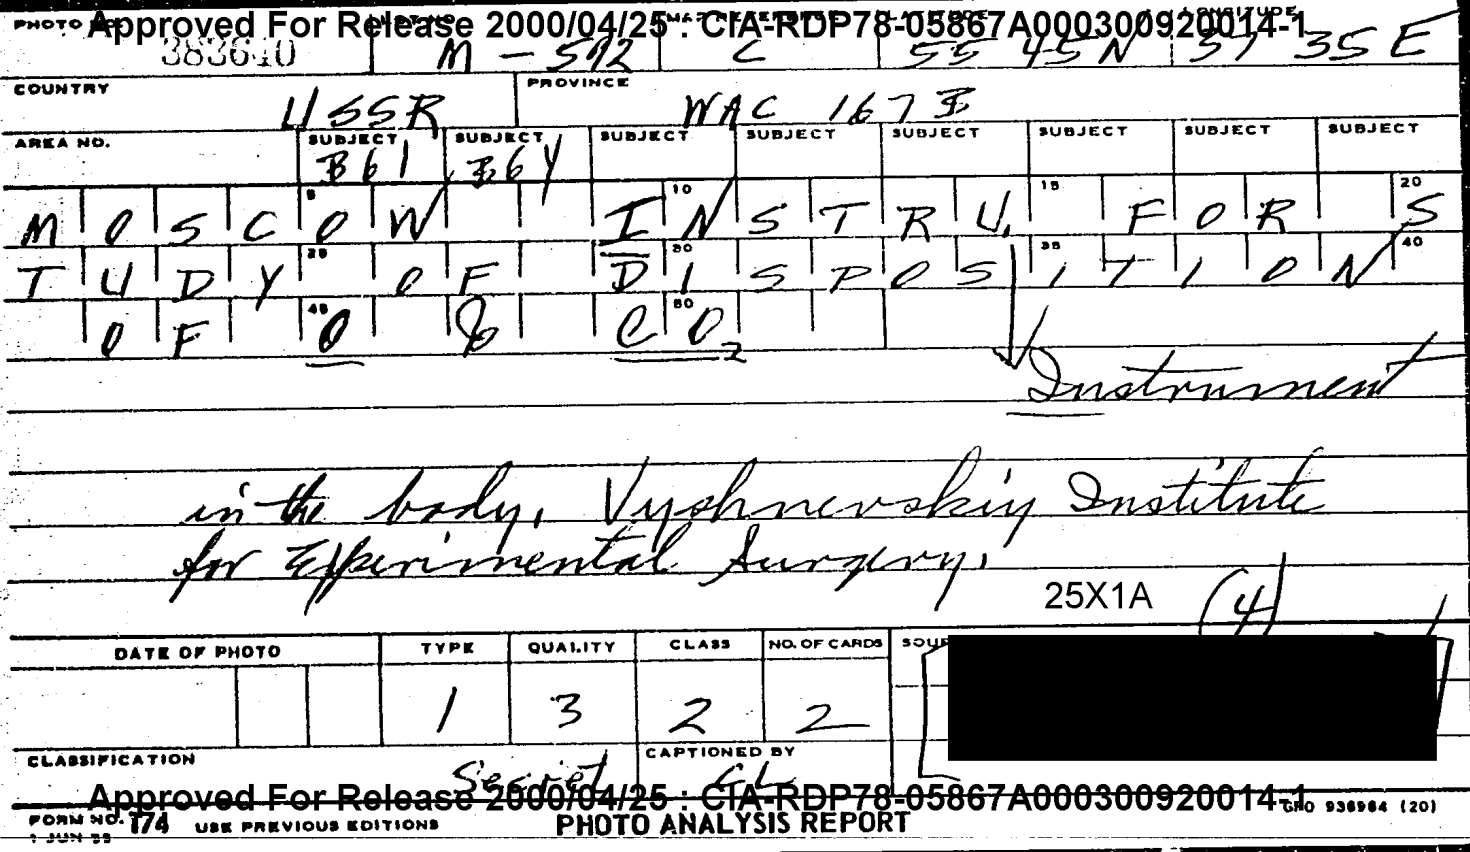 Approved For Release 2000/04/25 : CIA-RDP78-05867A000300920014-1
PHOTO LONGITUDE
383640 M-592 C 55 45N 37 35E
COUNTRY PROVINCE
USSR WAC 167 B
AREA NO. SUBJECT SUBJECT SUBJECT SUBJECT SUBJECT SUBJECT SUBJECT SUBJECT
B61 B6Y
5 10 15 20
MOSCOW INSTRU. FOR S
25 30 35 40
TUDY OF DISPOSITION
45 50
OF O & CO2
Instrument
in the body, Vyshnevskiy Institute
for Experimental Surgery.
25X1A (4)
DATE OF PHOTO TYPE QUALITY CLASS NO. OF CARDS SOUR
1 3 2 2
CLASSIFICATION CAPTIONED BY
Secret GL
Approved For Release 2000/04/25 : CIA-RDP78-05867A000300920014-1
GPO 936964 (20)
FORM NO. 174 USE PREVIOUS EDITIONS PHOTO ANALYSIS REPORT
1 JUN 55